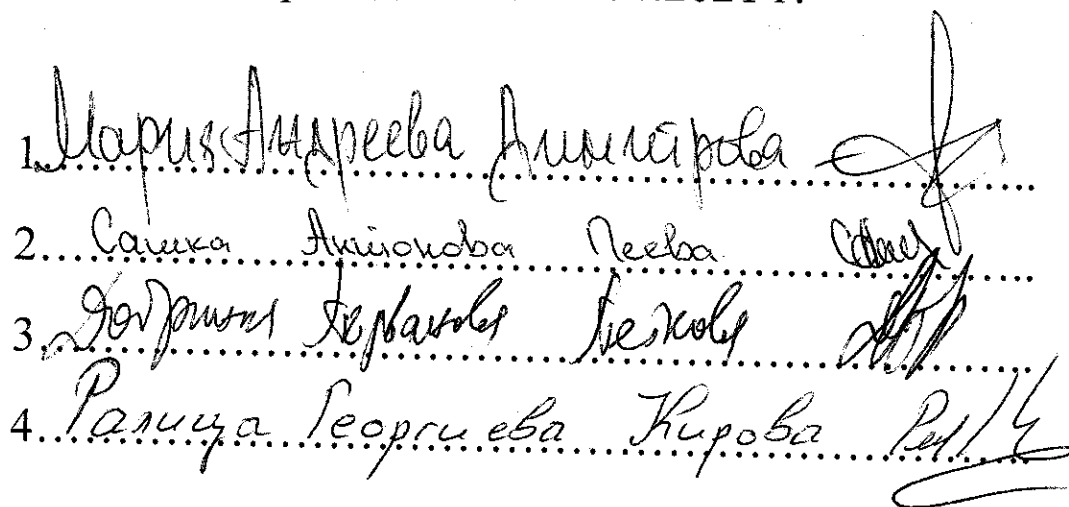 1. Мария Андреева Димитрова
2. Сашка Антонова Пеева
3. Добринка
4. Ралица Георгиева Кирова